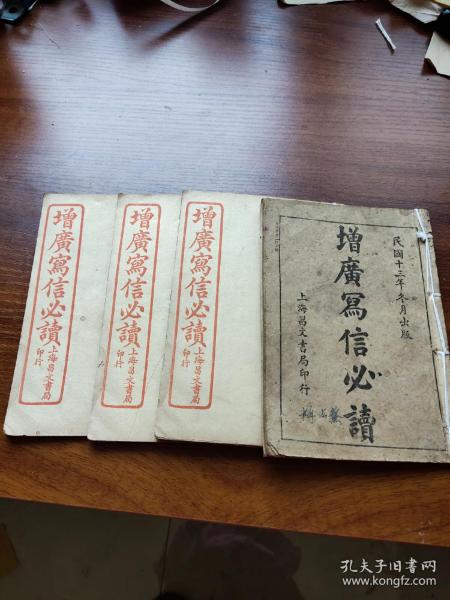 增廣寫信必讀
上海昌文書局
印行
增廣寫信必讀
上海昌文書局
印行
增廣寫信必讀
上海昌文書局
印行
民國十三年冬月出版
增廣寫信必讀
上海昌文書局印行
孔夫子旧书网
www.kongfz.com